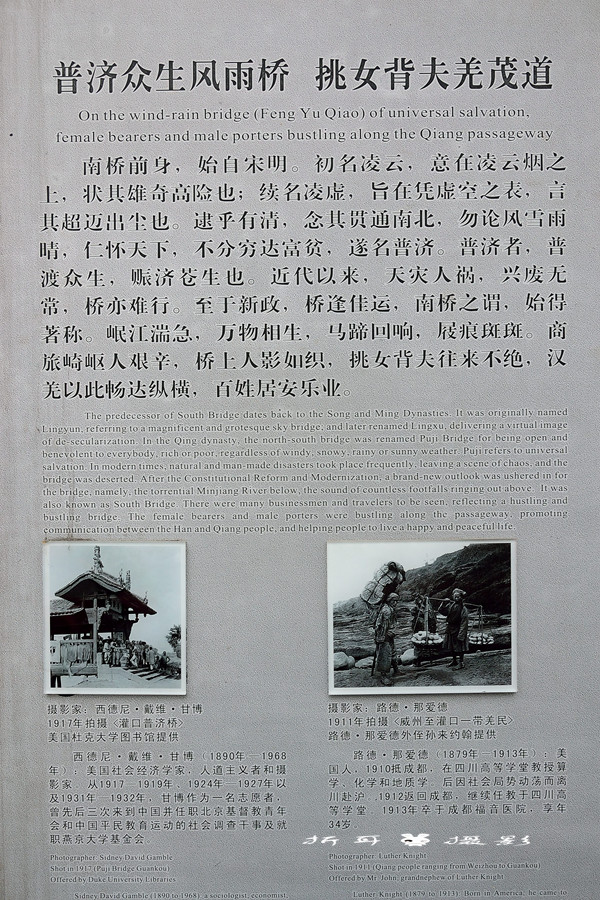 普济众生风雨桥 挑女背夫羌茂道
On the wind-rain bridge (Feng Yu Qiao) of universal salvation,
female bearers and male porters bustling along the Qiang passageway
南桥前身，始自宋明。初名凌云，意在凌云烟之
上，状其雄奇高险也；续名凌虚，旨在凭虚空之表，言
其超迈出尘也。逮乎有清，念其贯通南北，勿论风雪雨
晴，仁怀天下，不分穷达富贫，遂名普济。普济者，普
渡众生，赈济苍生也。近代以来，天灾人祸，兴废无
常，桥亦难行。至于新政，桥逢佳运，南桥之谓，始得
著称。岷江湍急，万物相生，马蹄回响，屐痕斑斑。商
旅崎岖人艰辛，桥上人影如织，挑女背夫往来不绝，汉
羌以此畅达纵横，百姓居安乐业。
The predecessor of South Bridge dates back to the Song and Ming Dynasties. It was originally named
Lingyun, referring to a magnificent and grotesque sky bridge, and later renamed Lingxu, delivering a virtual image
of de-secularization. In the Qing dynasty, the north-south bridge was renamed Puji Bridge for being open and
benevolent to everybody, rich or poor, regardless of windy, snowy, rainy or sunny weather. Puji refers to universal
salvation. In modern times, natural and man-made disasters took place frequently, leaving a scene of chaos, and the
bridge was deserted. After the Constitutional Reform and Modernization, a brand-new outlook was ushered in for
the bridge, namely, the torrential Minjiang River below, the sound of countless footfalls ringing out above. It was
also known as South Bridge. There were many businessmen and travelers to be seen, reflecting a hustling and
bustling bridge. The female bearers and male porters were bustling along the passageway, promoting
communication between the Han and Qiang people, and helping people to live a happy and peaceful life.
摄影家：西德尼·戴维·甘博
1917年拍摄《灌口普济桥》
美国杜克大学图书馆提供
西德尼·戴维·甘博（1890年—1968
年）；美国社会经济学家，人道主义者和摄
影家 从1917—1919年、1924年—1927年以
及1931年—1932年，甘博作为一名志愿者，
曾先后三次来到中国并任职北京基督教青年
会和中国平民教育运动的社会调查干事及就
职燕京大学基金会。
Photographer: Sidney David Gamble
Shot in 1917 (Puji Bridge Guankou)
Offered by Duke University Libraries
Sidney David Gamble (1890 to 1968), a sociologist, economist,
摄影家：路德·那爱德
1911年拍摄《威州至灌口一带羌民》
路德·那爱德外侄孙来约翰提供
路德·那爱德（1879年—1913年）；美
国人，1910抵成都，在四川高等学堂教授算
学、化学和地质学。后因社会局势动荡而离
川赴沪 .1912返回成都，继续任教于四川高
等学堂 1913年卒于成都福音医院，享年
34岁。
Photographer: Luther Knight
Shot in 1911 (Qiang people ranging from Weizhou to Guankou)
Offered by Mr. John, grandnephew of Luther Knight
Luther Knight (1879 to 1913): Born in America, he came to